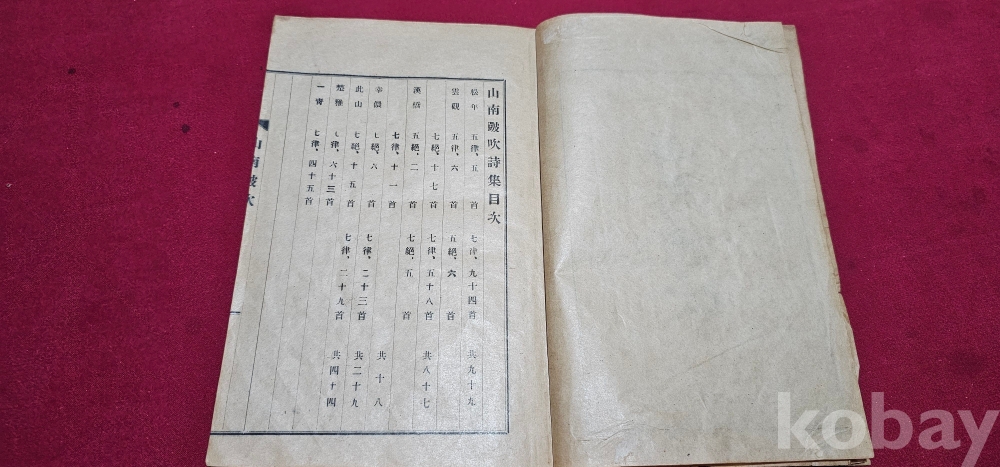 山南皷吹詩集目次
松年 五律、五首 七律、九十四首 共九十九
雲觀 五律、六首 五絕、六首
七絕、十七首 七律、五十八首 共八十七
漢 五絕、二首 七絕、五首
七律、十一首 共十八
七絕、六首 七律、二十三首 共二十九
此山 七絕、十五首 七律、二十九首 共四十四
楚 七律、六十三首
一靑 七律、四十五首
山南皷吹
kobay